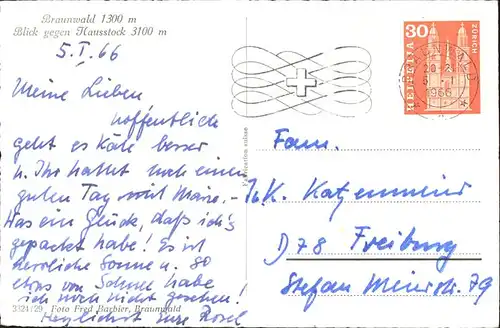 Braunwald 1300 m
Blick gegen Hausstock 3100 m
5. I. 66
Meine Lieben
hoffentlich
geht es Käte besser
u. Ihr hattet noch einen
guten Tag mit Marie.-
Was ein Glück, daß ich's
gepackt habe! Es ist
herrliche Sonne u. so
etwas von Schnee habe
ich noch nicht gesehen!
Herzlichst Eure Rosel
3324/29 Foto Fred Barbier, Braunwald
Fabrication suisse
30
HELVETIA
ZÜRICH
BRAUNWALD
1966
Fam.
K. Katzenmeier
D 78 Freiburg
Stefan Meierstr. 79